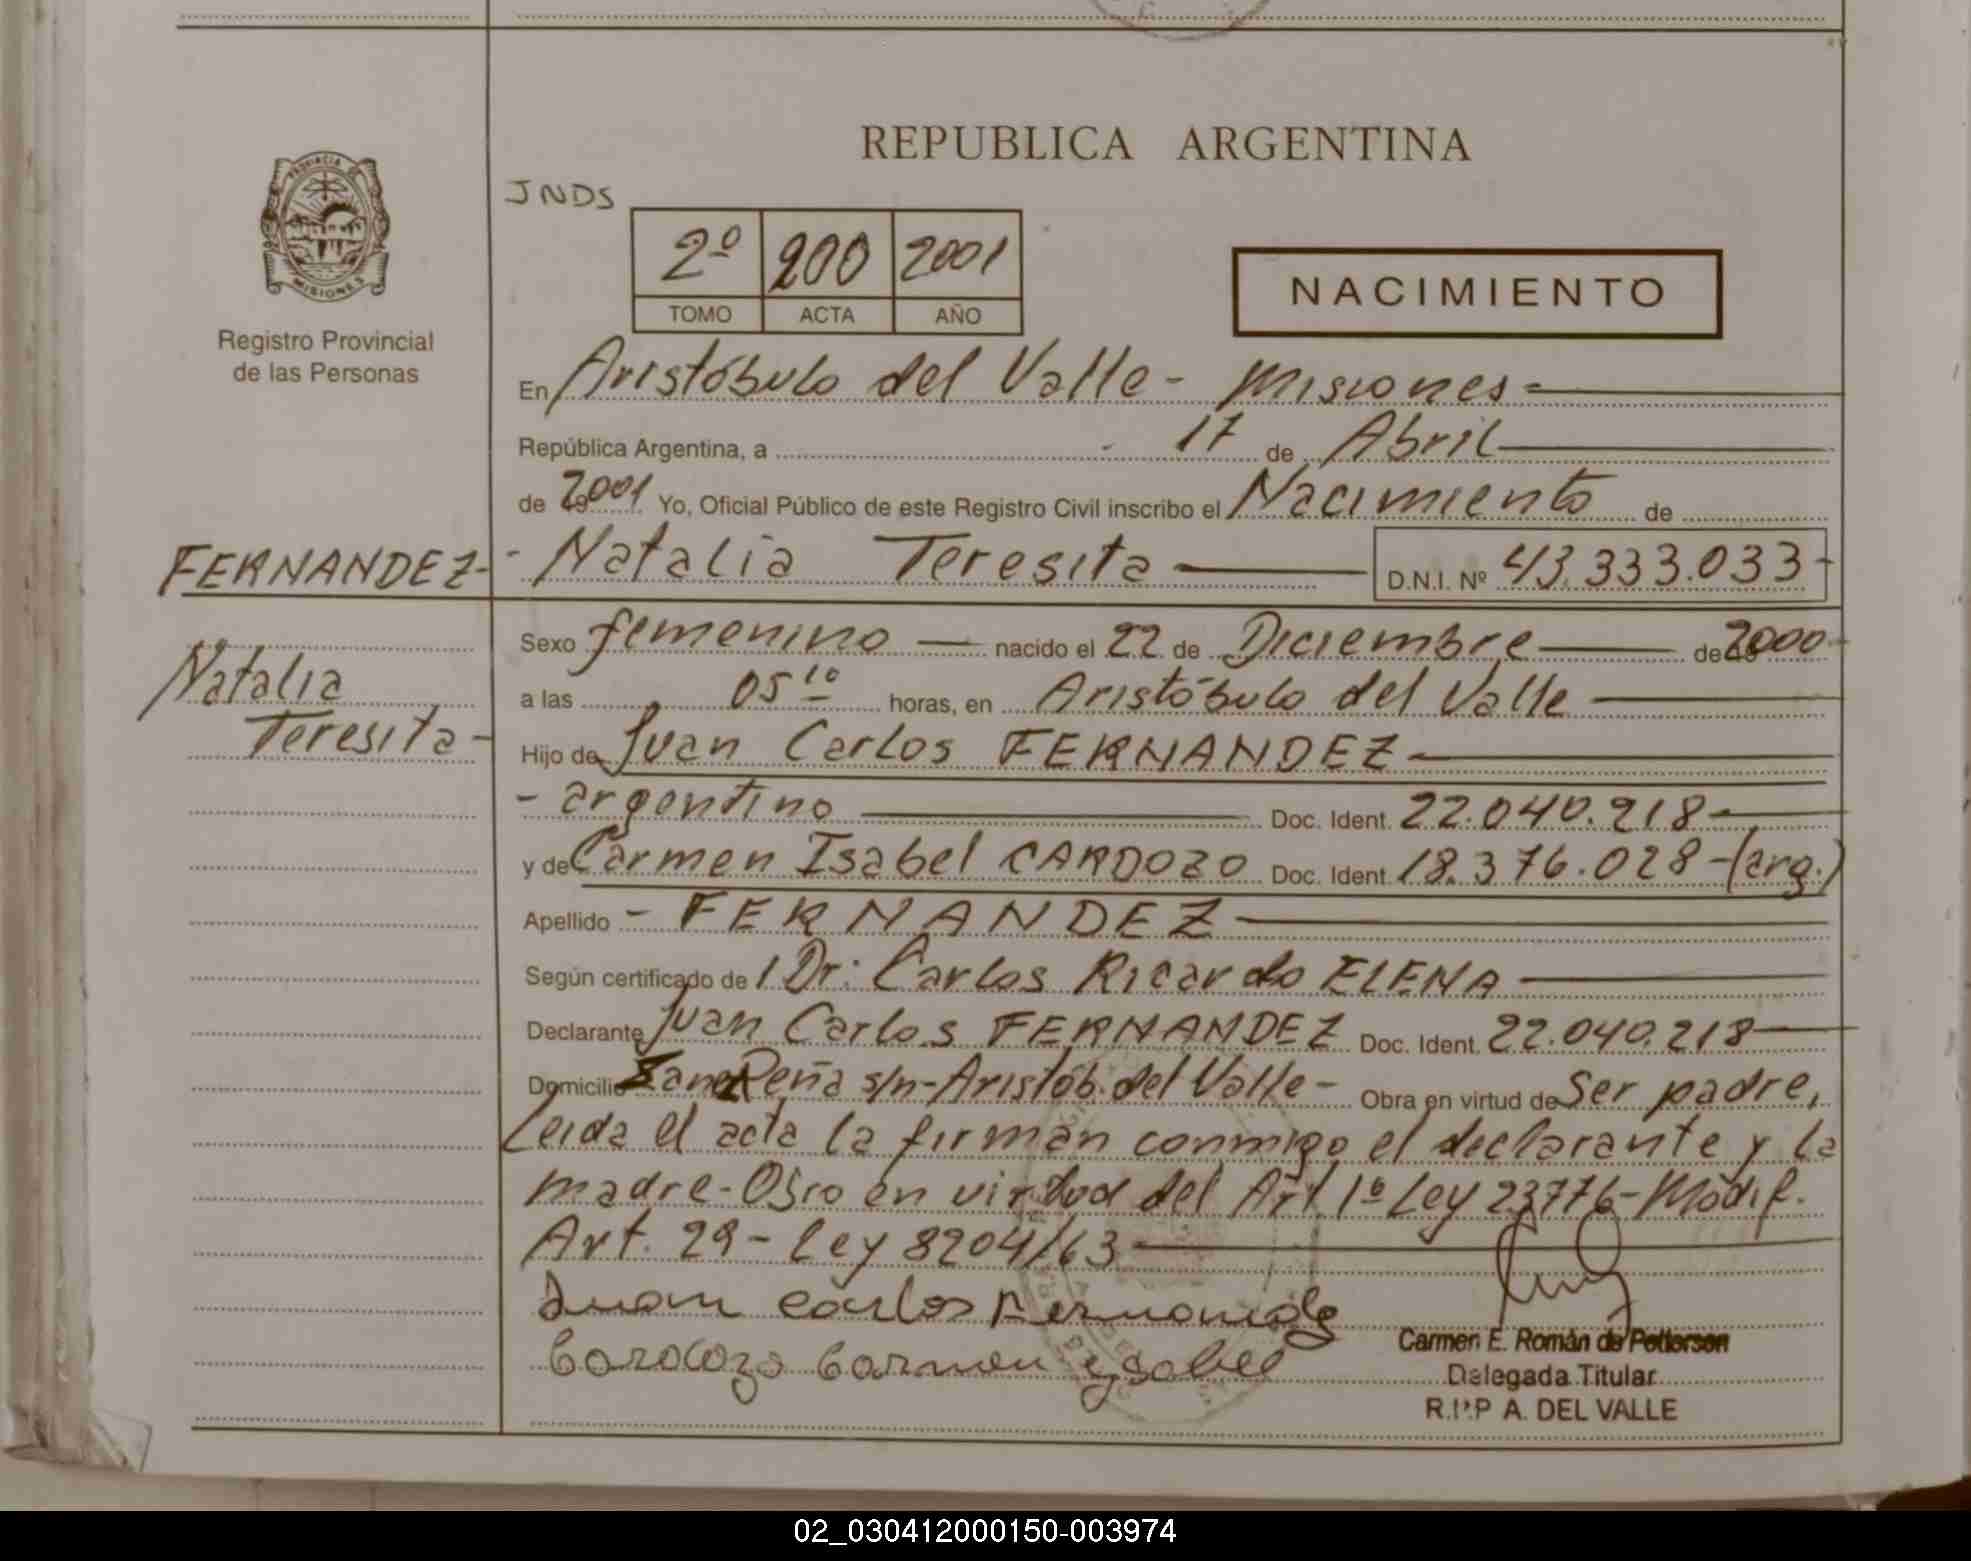 REPUBLICA ARGENTINA
PROVINCIA DE
MISIONES
Registro Provincial
de las Personas
JNDS
2º 200 2001
TOMO ACTA AÑO
NACIMIENTO
En Aristóbulo del Valle - Misiones -
República Argentina, a 17 de Abril
de 2001 Yo, Oficial Público de este Registro Civil inscribo el Nacimiento de
FERNANDEZ - - Natalia Teresita D.N.I. Nº 43.333.033 -
Natalia
Teresita -
Sexo femenino nacido el 22 de Diciembre de 2000
a las 05 10 horas, en Aristóbulo del Valle
Hijo de Juan Carlos FERNANDEZ
- argentino Doc. Ident. 22.040.218 -
y de Carmen Isabel CARDOZO Doc. Ident. 18.376.028 - (arg.)
Apellido - FERNANDEZ
Según certificado de / Dr: Carlos Ricardo ELENA
Declarante Juan Carlos FERNANDEZ Doc. Ident. 22.040.218
Domicilio Peña s/n - Aristób. del Valle - Obra en virtud de Ser padre,
Leida el acta la firman conmigo el declarante y la
madre - Obro en virtud del Art. 1º Ley 23776 - Modif.
Art. 29 - Ley 8204/63
Juan Carlos Fernandez
Cardozo Carmen Ysabel
Carmen E. Román de Petterson
Delegada Titular
R.P.P A. DEL VALLE
02_030412000150-003974